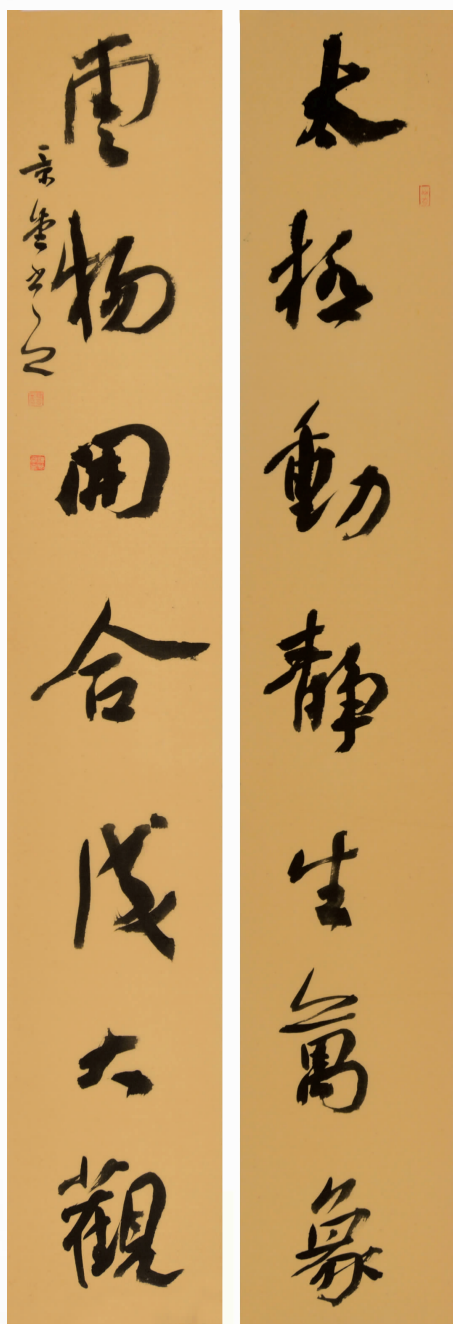 太極動靜生萬象
雲物開合成大觀